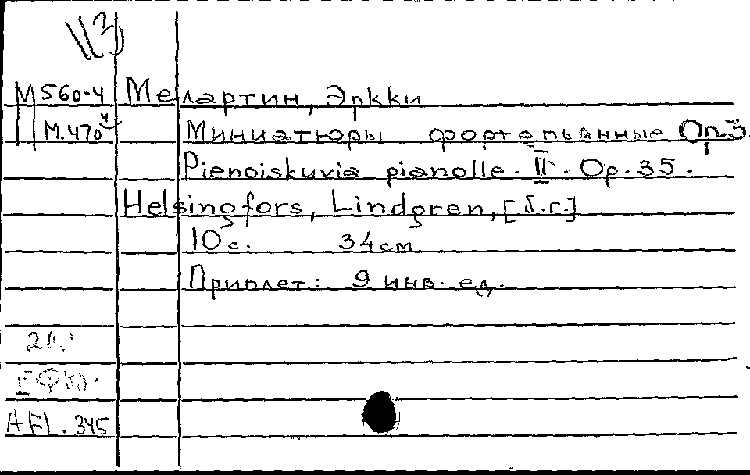 М560-4 Мелартин, Эркки
М.470 Миниатюры фортепьянные Op.3
Pienoiskuvia pianolle. II. Op. 35.
Helsingfors, Lindgren, [б.г.]
10 с. 34 см
Приплет: 9 инв. ед.
AFL. 345